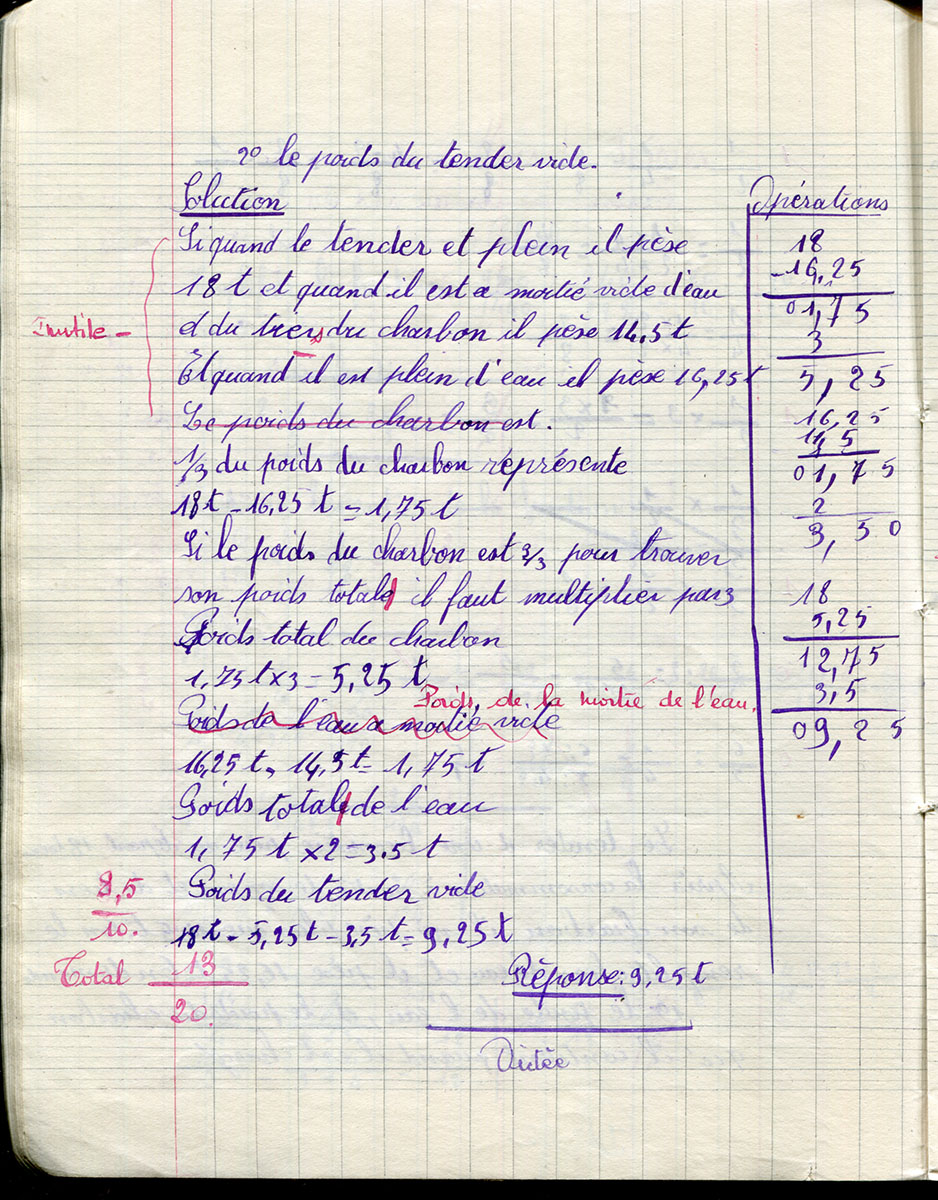 2º le poids du tender vide.
Solution
Si quand le tender et plein il pèse
18 t et quand il est a moitié vide d'eau
et du tiers du charbon il pèse 14,5 t
Et quand il est plein d'eau il pèse 16,25 t
Inutile -
Le poids du charbon est.
1/3 du poids du charbon représente
18 t - 16,25 t = 1,75 t
Si le poids du charbon est 3/3 pour trouver
son poids totale il faut multiplier par 3
Poids total du charbon
1,75 t x 3 = 5,25 t
Poids de la moitié de l'eau.
Poids de l'eau a moitié vide
16,25 t - 14,5 t = 1,75 t
Poids totale de l'eau
1,75 t x 2 = 3,5 t
Poids du tender vide
18 t - 5,25 t - 3,5 t = 9,25 t
Réponse : 9,25 t
8,5
10.
Total 13
20.
Dictée
Opérations
18
- 16,25
01,75
3
5,25
16,25
14,5
01,75
2
3,50
18
5,25
12,75
3,5
09,25